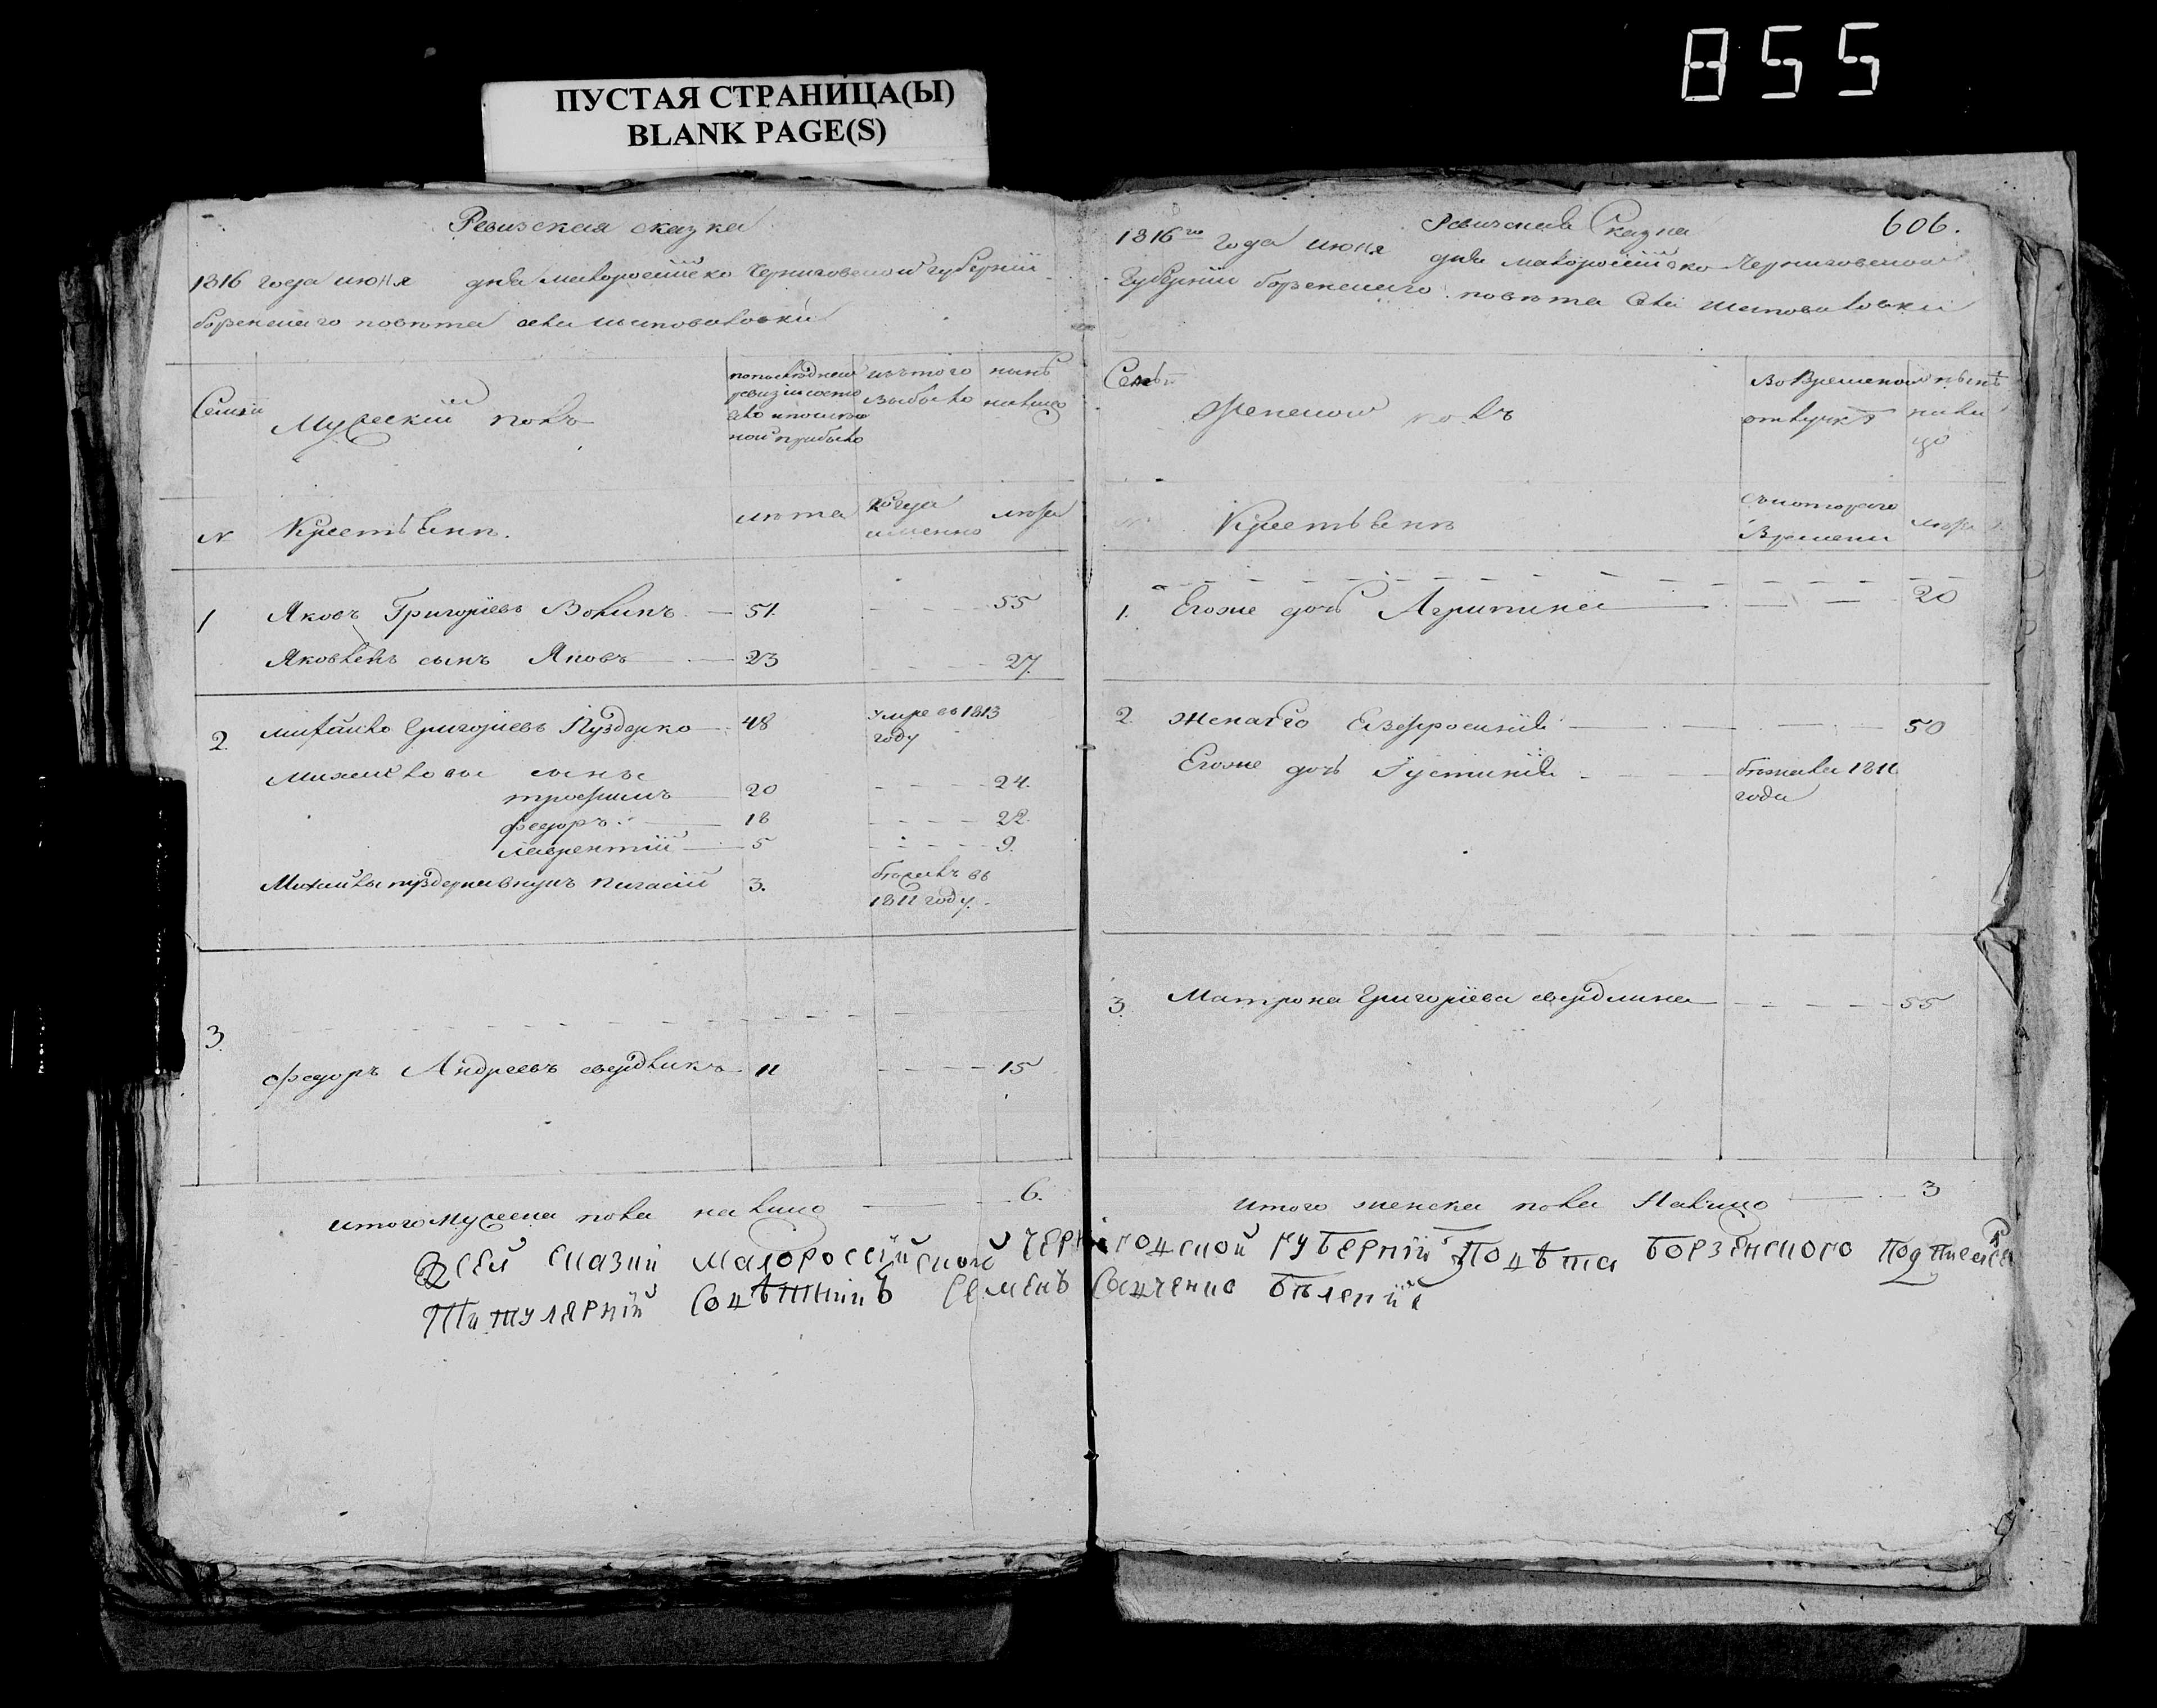 855
ПУСТАЯ СТРАНИЦА(Ы)
BLANK PAGE(S)
Ревизская сказка
1816 года июня дня малороссійско Черниговской губерніи
борзенскаго повѣта села шаповаловки
Семьи
Мужескій полъ
по последней
ревизіи состо
яло и после
ной прибыло
изътого
выбыло
нынѣ
налицо
N
Крестьянъ.
лѣта
когда
именно
лѣта
1 Яковъ Григоріевъ Воликъ 51. 55
Яковлевъ сынъ Яковъ 23 27.
2. михайло Григоріевъ Пуздерко 48 умре въ 1813
году
Михайловы сыны
трофимъ 20 24.
федоръ 18 22.
лаврентій 5 9.
Михайлы пуздерка внукъ 3. бежалъ въ
1811 году.
3.
федоръ Андреевъ свердликъ 11 15
итого мужеска пола налицо 6.
606.
Ревизская Сказка
1816го года июня дня малороссійско Черниговской
Губерніи борзенскаго повѣта села шаповаловки
Семьи
Женской полъ
во временной
отлучкѣ
нынѣ
нали
цо
Крестьянъ
съ котораго
времени
лѣта
1. Егоже дочь Агрипина 20
2. жена его Евфросинія 50
Егоже дочь Густинія бежала 1811
года
3. Матрона Григоріева свердлика 55
итого женска пола налицо 3
К сей сказки малороссійской Черніговской губерніи Повѣта борзенского подписался
Титулярній Совѣтникъ Семенъ Савченко Бѣлскій